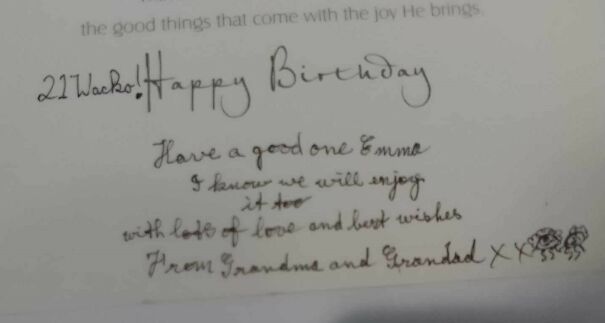 the good things that come with the joy He brings.
21 Wacko! Happy Birthday
Have a good one Emma
I know we will enjoy
it too
with lots of love and best wishes
From Grandma and Grandad X X